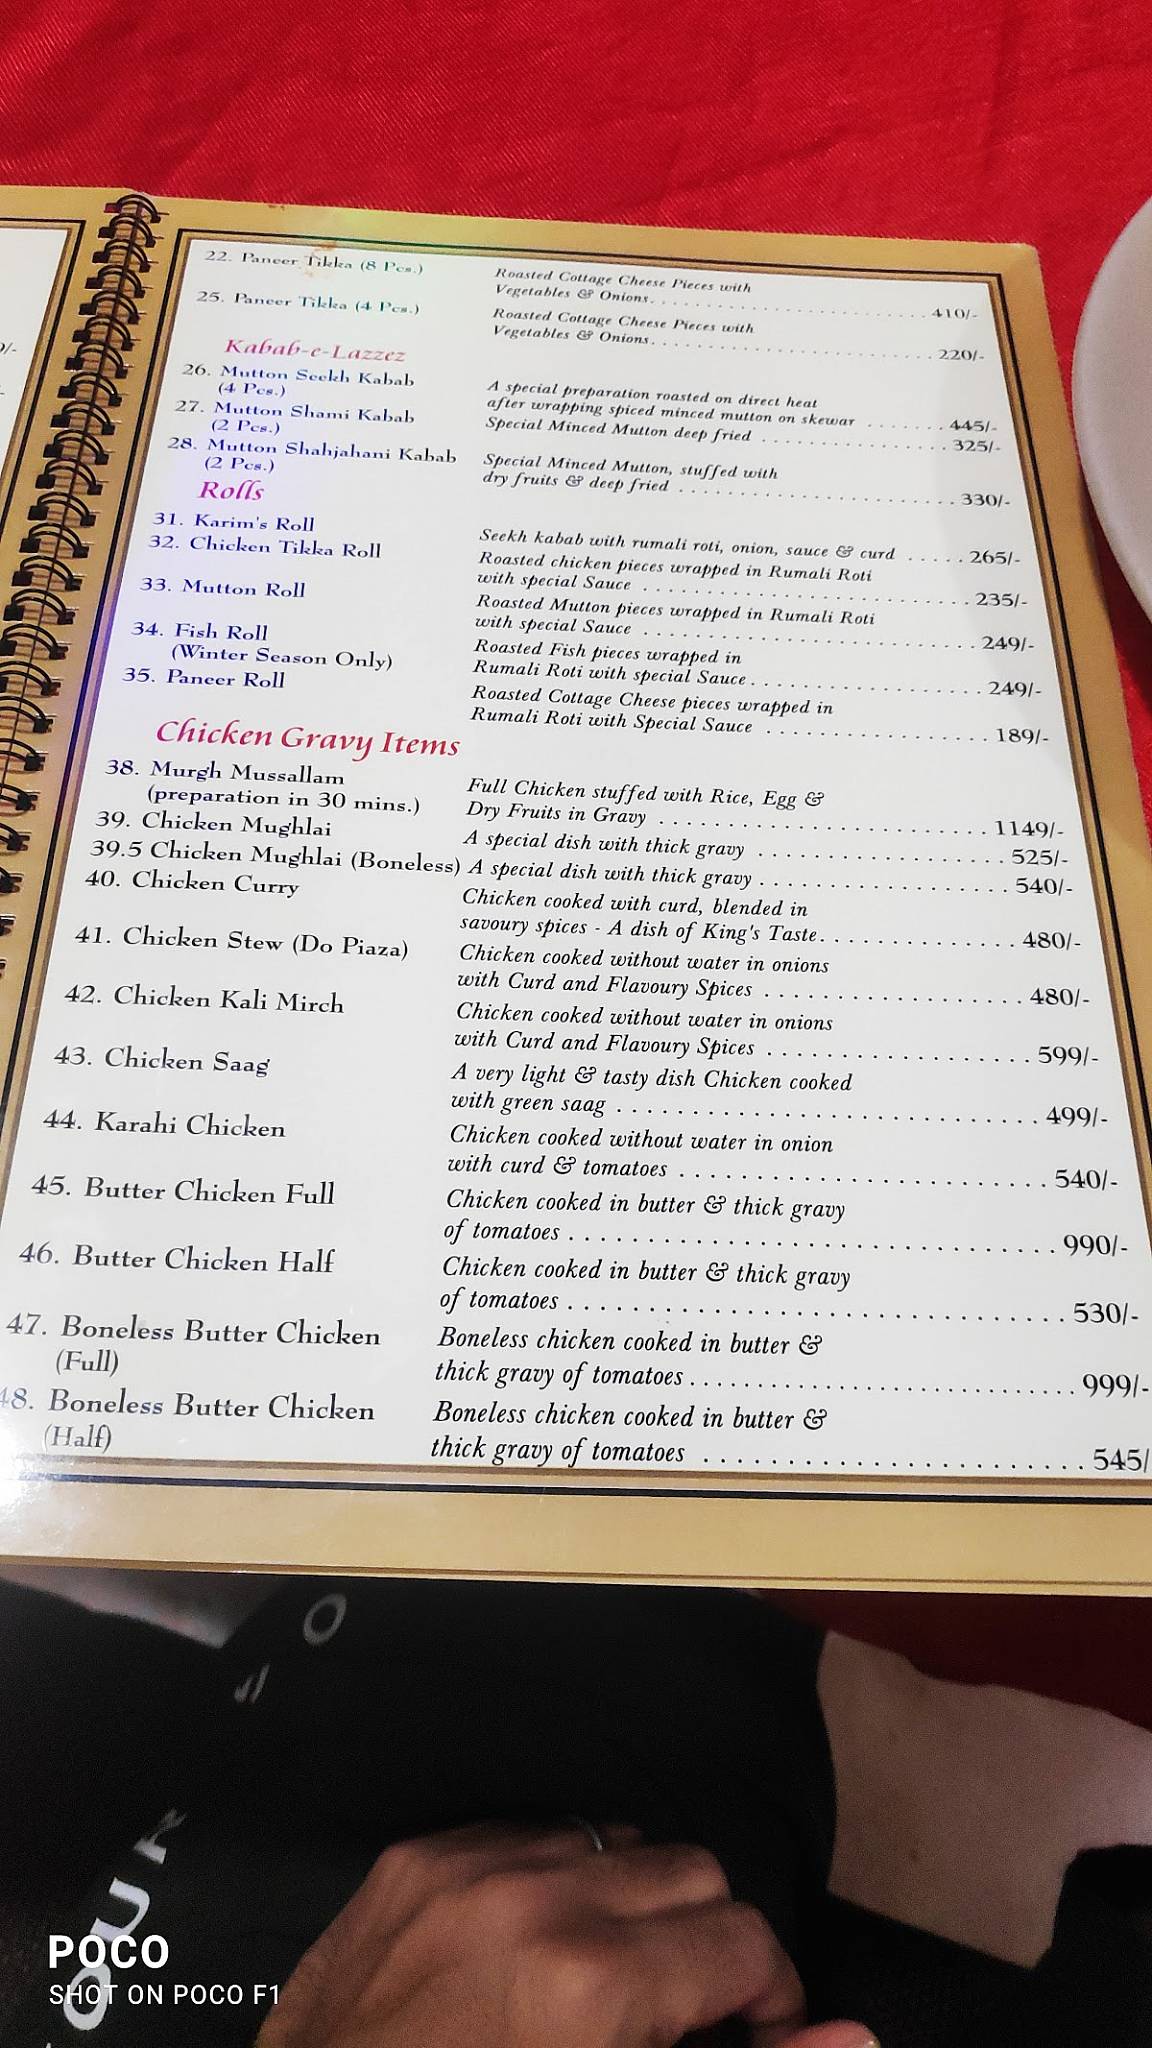 22. Paneer Tikka (8 Pcs.)
Roasted Cottage Cheese Pieces with
Vegetables & Onions. . . . . . . . . . . . . . . . . . . . . . . . . . . . 410/-
25. Paneer Tikka (4 Pcs.)
Roasted Cottage Cheese Pieces with
Vegetables & Onions. . . . . . . . . . . . . . . . . . . . . . . . . . . . 220/-
Kabab-e-Lazzez
26. Mutton Seekh Kabab
(4 Pcs.)
A special preparation roasted on direct heat
after wrapping spiced minced mutton on skewar . . . . . . . 445/-
27. Mutton Shami Kabab
(2 Pcs.)
Special Minced Mutton deep fried . . . . . . . . . . . . . . . . . . 325/-
28. Mutton Shahjahani Kabab
(2 Pcs.)
Special Minced Mutton, stuffed with
dry fruits & deep fried . . . . . . . . . . . . . . . . . . . . . . . . . . 330/-
Rolls
31. Karim's Roll
Seekh kabab with rumali roti, onion, sauce & curd . . . . . 265/-
32. Chicken Tikka Roll
Roasted chicken pieces wrapped in Rumali Roti
with special Sauce . . . . . . . . . . . . . . . . . . . . . . . . . . . . 235/-
33. Mutton Roll
Roasted Mutton pieces wrapped in Rumali Roti
with special Sauce . . . . . . . . . . . . . . . . . . . . . . . . . . . . 249/-
34. Fish Roll
(Winter Season Only)
Roasted Fish pieces wrapped in
Rumali Roti with special Sauce . . . . . . . . . . . . . . . . . . . 249/-
35. Paneer Roll
Roasted Cottage Cheese pieces wrapped in
Rumali Roti with Special Sauce . . . . . . . . . . . . . . . . . . 189/-
Chicken Gravy Items
38. Murgh Mussallam
(preparation in 30 mins.)
Full Chicken stuffed with Rice, Egg &
Dry Fruits in Gravy . . . . . . . . . . . . . . . . . . . . . . . . . . 1149/-
39. Chicken Mughlai
A special dish with thick gravy . . . . . . . . . . . . . . . . . . . 525/-
39.5 Chicken Mughlai (Boneless) A special dish with thick gravy . . . . . . . . . . . . . . . . . . . 540/-
40. Chicken Curry
Chicken cooked with curd, blended in
savoury spices - A dish of King's Taste. . . . . . . . . . . . . . 480/-
41. Chicken Stew (Do Piaza)
Chicken cooked without water in onions
with Curd and Flavoury Spices . . . . . . . . . . . . . . . . . . . 480/-
42. Chicken Kali Mirch
Chicken cooked without water in onions
with Curd and Flavoury Spices . . . . . . . . . . . . . . . . . . . 599/-
43. Chicken Saag
A very light & tasty dish Chicken cooked
with green saag . . . . . . . . . . . . . . . . . . . . . . . . . . . . . . 499/-
44. Karahi Chicken
Chicken cooked without water in onion
with curd & tomatoes . . . . . . . . . . . . . . . . . . . . . . . . . . 540/-
45. Butter Chicken Full
Chicken cooked in butter & thick gravy
of tomatoes . . . . . . . . . . . . . . . . . . . . . . . . . . . . . . . . . 990/-
46. Butter Chicken Half
Chicken cooked in butter & thick gravy
of tomatoes . . . . . . . . . . . . . . . . . . . . . . . . . . . . . . . . . 530/-
47. Boneless Butter Chicken
(Full)
Boneless chicken cooked in butter &
thick gravy of tomatoes . . . . . . . . . . . . . . . . . . . . . . . . . 999/-
48. Boneless Butter Chicken
(Half)
Boneless chicken cooked in butter &
thick gravy of tomatoes . . . . . . . . . . . . . . . . . . . . . . . . 545/
POCO
SHOT ON POCO F1